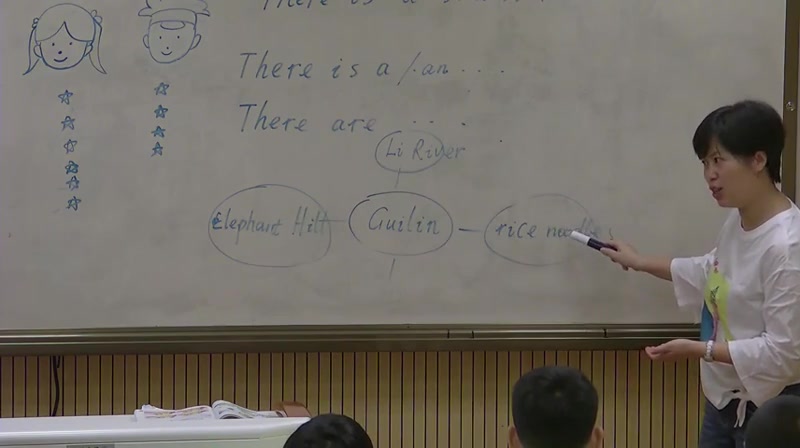 There is a
There is a /. an ....
There are ....
Li River
Elephant Hill
Guilin
rice noodles